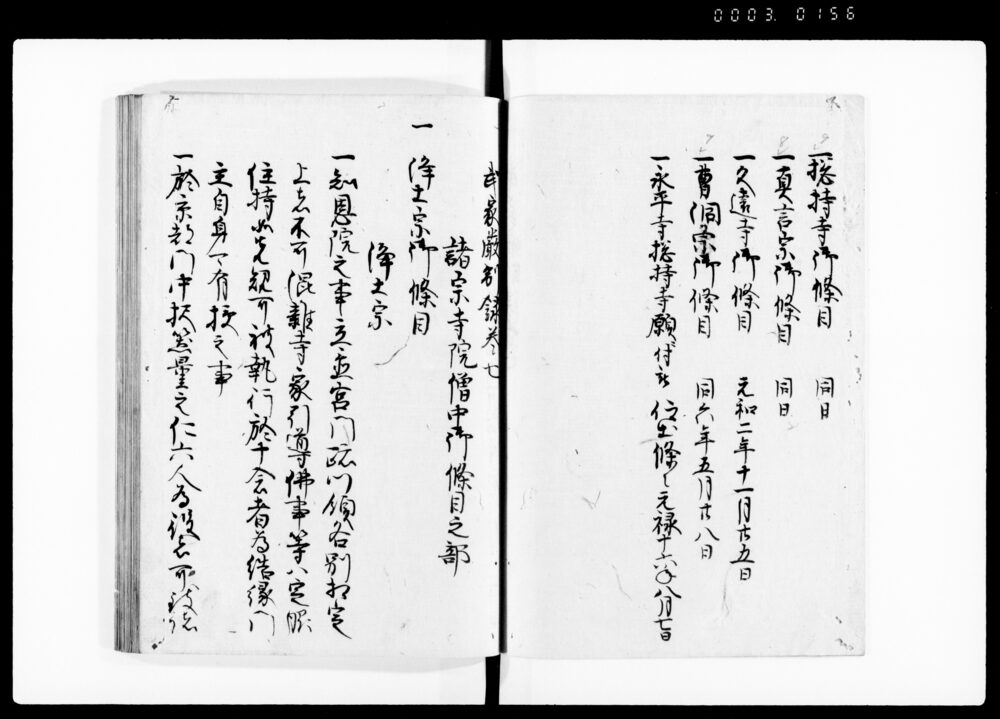 0003 0156
一総持寺御條目 同日
一真言宗御條目 同日
一久遠寺御條目 元和二年十一月廿五日
一曹洞宗御條目 同六年五月廿八日
一永平寺総持寺願ニ付被 仰出條々 元禄十六年八月七日
武家厳制録巻七
諸宗寺院僧中御條目之部
一 浄土宗御條目
浄土宗
一知恩院之事立置宮門跡門領各別相定
上者不可混雑寺家引導佛事等ハ定脇
住持如先規可被執行於十念者為結縁門
主自身可有授之事
一於京都門中択器量之仁六人為役者可致